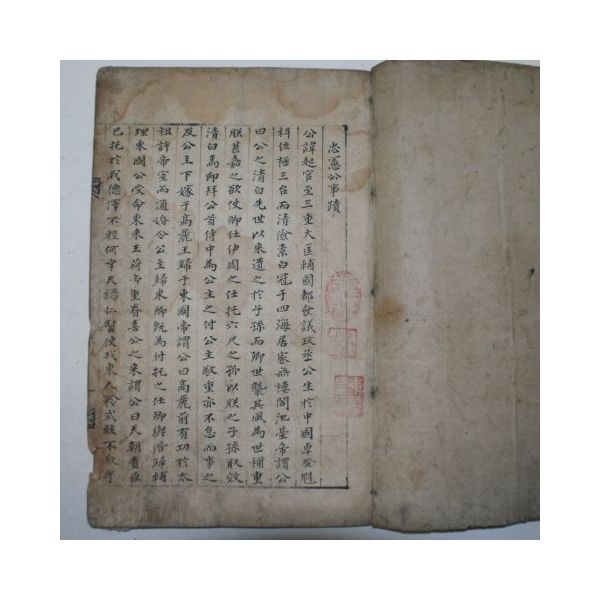 忠憲公事蹟
公諱起官至三重大匡輔國都僉議政丞公生於中國卓登魁
科位極三台而清儉素白冠于四海居家無樓閣池臺帝謂公
曰公之清白先世以來遺之於子孫而卿世襲其風為世補重
朕甚嘉之欲使卿任伊周之任托六尺之孫以朕之子孫取效
清白焉卽拜公首侍中為公主之付公主敬重亦不怠而事之
及公主下嫁于高麗王歸于東國帝謂公曰高麗前有功於太
祖許帝室而通婚今公主歸東卿旣為付托之任卿與偕歸輔
理東國公受命東來王荷帝重眷喜公之來謂公曰天朝賢臣
已托於我德澤不輕何幸天錫仁賢使我東人矜式敢不敬乎